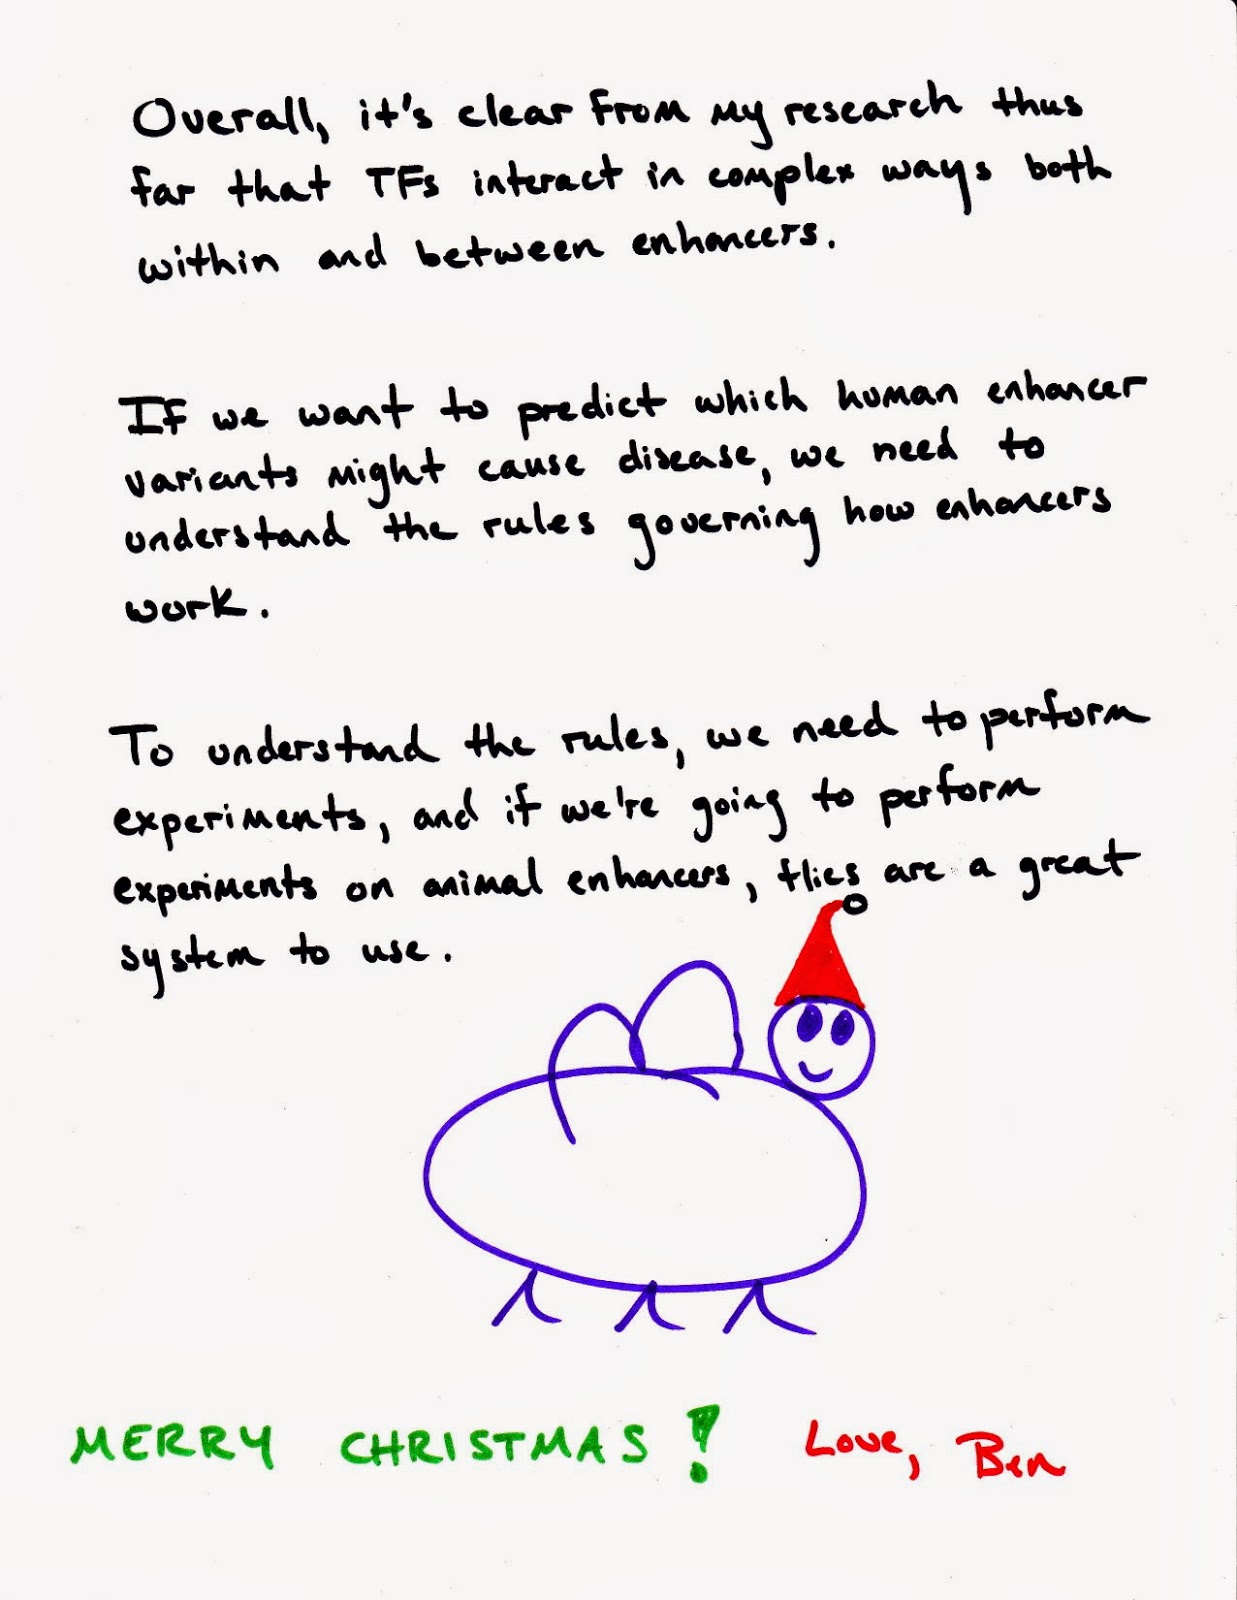 Overall, it's clear from my research thus
far that TFs interact in complex ways both
within and between enhancers.
If we want to predict which human enhancer
variants might cause disease, we need to
understand the rules governing how enhancers
work.
To understand the rules, we need to perform
experiments, and if we're going to perform
experiments on animal enhancers, flies are a great
system to use.
MERRY CHRISTMAS! Love, Ben